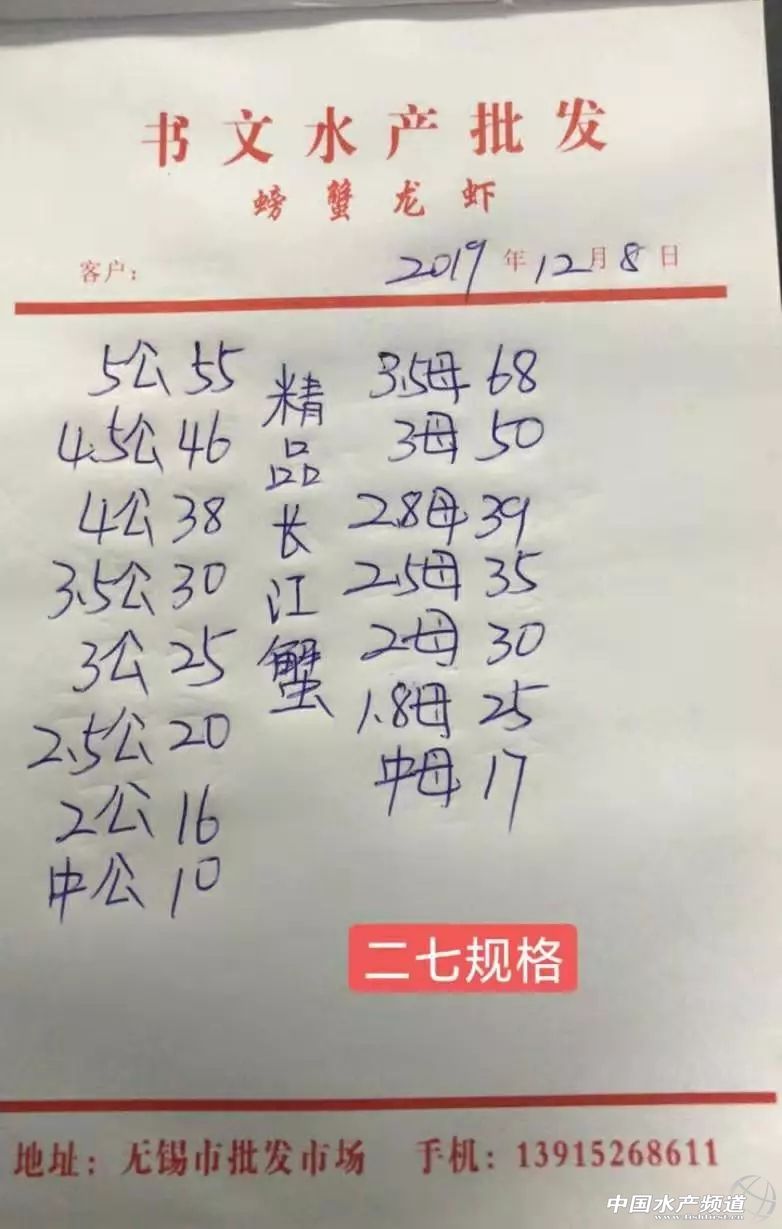 书文水产批发
螃蟹龙虾
客户：
2019年12月8日
5公 55
4.5公 46
4公 38
3.5公 30
3公 25
2.5公 20
2公 16
中公 10
精品长江蟹
3.5母 68
3母 50
2.8母 39
2.5母 35
2母 30
1.8母 25
中母 17
二七规格
地址：无锡市批发市场 手机：13915268611
中国水产频道